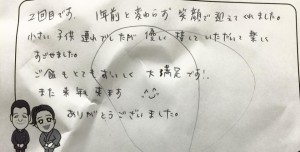 2回目です。 1年前と変わらず 笑顔で迎えてくれました。
小さい子供 連れでしたが 優しく 接していただいて 楽しく
すごせました。
ご飯もとてもおいしく 大満足です!
また来年も来ます
ありがとうございました。